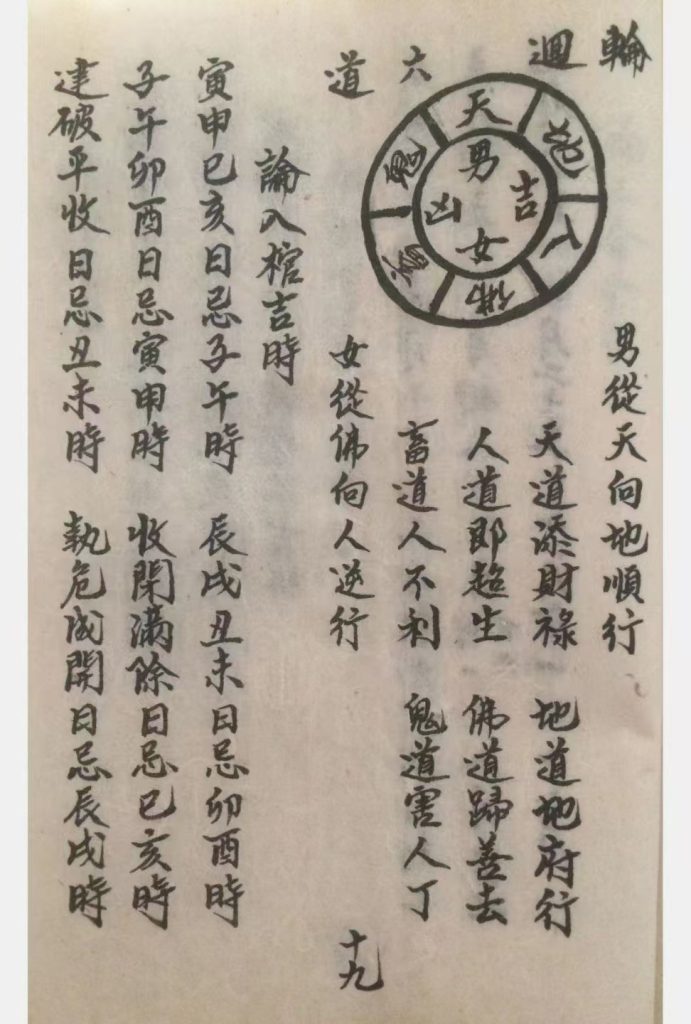 輪迴六道
天
地
人
佛
畜
鬼
男
吉
女
凶
男從天向地順行
天道添財祿 地道地府行
人道即超生 佛道歸善去
畜道人不利 鬼道害人丁
女從佛向人逆行
論入棺吉時
寅申巳亥日忌子午時 辰戌丑未日忌卯酉時
子午卯酉日忌寅申時 收閉滿除日忌巳亥時
建破平收日忌丑未時 執危成開日忌辰戌時
十九